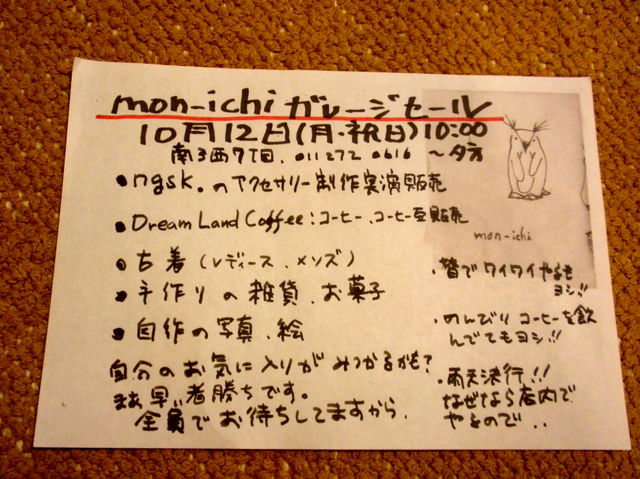 mon-ichi ガレージセール
10月12日(月・祝日)10:00
南3西7丁目、011 272 0616 〜夕方
・ngsk.のアクセサリー製作実演販売
・Dream Land Coffee:コーヒー、コーヒー豆販売
・古着(レディース、メンズ)
・手作りの雑貨、お菓子
・自作の写真、絵
自分のお気に入りがみつかるかも?
まぁ早い者勝ちです。
全員でお待ちしてますから、
mon-ichi
・皆でワイワイやるも
ヨシ!!
・のんびりコーヒーを飲
んでてもヨシ!!
・雨天決行!!
なぜなら店内で
やるので..